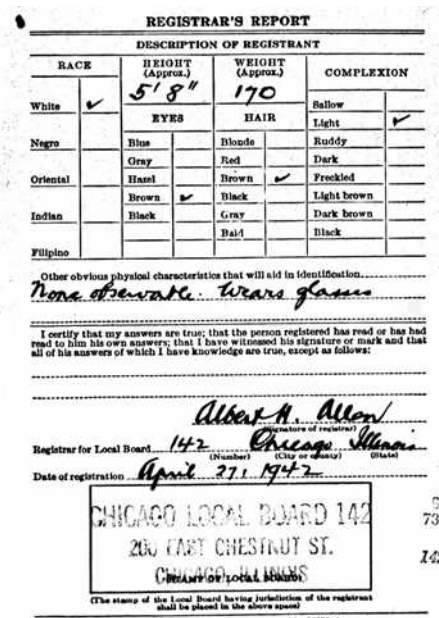 REGISTRAR'S REPORT
DESCRIPTION OF REGISTRANT
RACE HEIGHT (Approx.) WEIGHT (Approx.) COMPLEXION
5' 8" 170
White ✓ Sallow
EYES HAIR Light ✓
Negro Blue Blonde Ruddy
Gray Red Dark
Oriental Hazel Brown ✓ Freckled
Brown ✓ Black Light brown
Indian Black Gray Dark brown
Bald Black
Filipino
Other obvious physical characteristics that will aid in identification
None observable. Wears glasses
I certify that my answers are true; that the person registered has read or has had
read to him his own answers; that I have witnessed his signature or mark and that
all of his answers of which I have knowledge are true, except as follows:
Albert H. Allen
(Signature of registrar)
Registrar for Local Board 142 Chicago Illinois
(Number) (City or county) (State)
Date of registration April 27, 1942
CHICAGO LOCAL BOARD 142
200 EAST CHESTNUT ST.
CHICAGO, ILLINOIS
(STAMP OF LOCAL BOARD)
(The stamp of the Local Board having jurisdiction of the registrant
shall be placed in the above space)